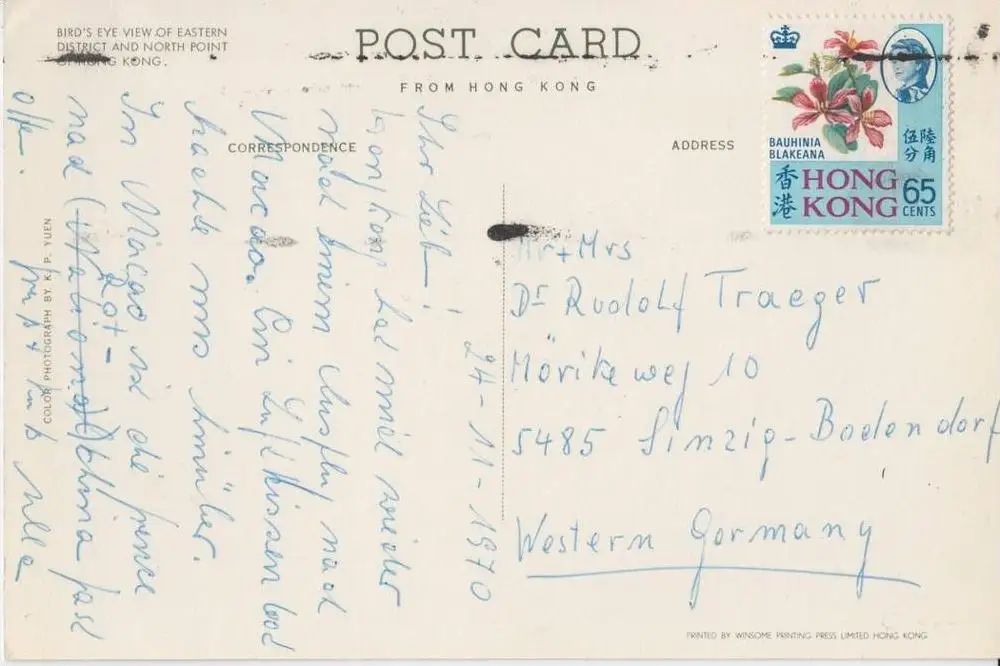 BIRD'S EYE VIEW OF EASTERN
DISTRICT AND NORTH POINT
OF HONG KONG.
POST CARD
FROM HONG KONG
CORRESPONDENCE
ADDRESS
BAUHINIA
BLAKEANA
伍分
陸角
香港
HONG
KONG
65
CENTS
24-11-1970
Ihr Lieb
Hongkong hat mich wieder
nach einem Ausflug nach
Macao. Ein Luftkissenboot
brachte uns hinüber.
In Macao ist die Grenze
nach (National) Rot-China fast
offen.
Gruß + Kuß
Mr + Mrs
Dr Rudolf Traeger
Mörikeweg 10
5485 Sinzig-Bodendorf
Western Germany
COLOR PHOTOGRAPH BY K. P. YUEN
PRINTED BY WINSOME PRINTING PRESS LIMITED HONG KONG